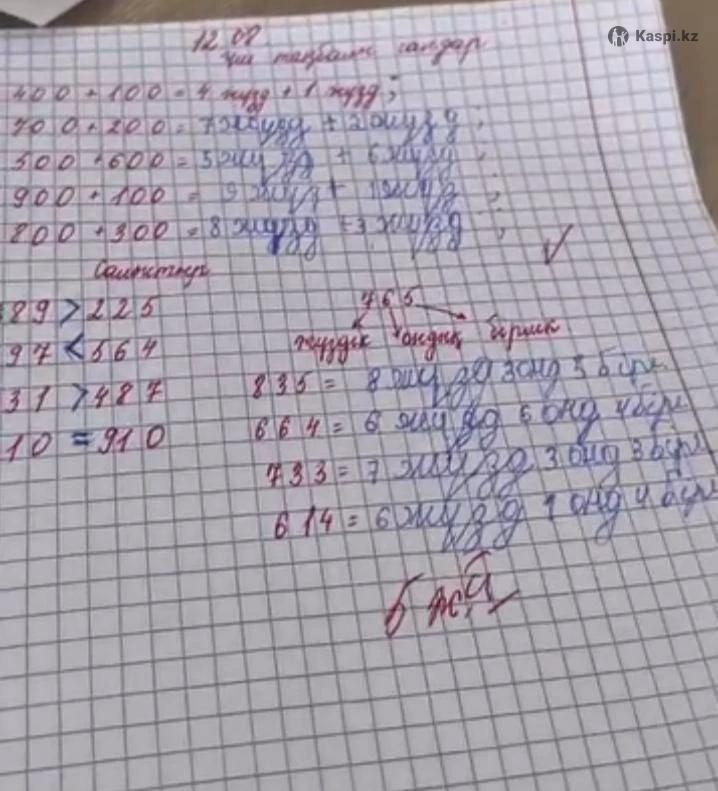 Kaspi.kz
12.08
Үш таңбалы сандар
400 + 100 = 4 жүзд + 1 жүзд;
700 + 200 = 7 жүзд + 2 жүзд;
500 + 600 = 5 жүзд + 6 жүзд;
900 + 100 = 9 жүз + 1 жүзд;
800 + 300 = 8 жүзд + 3 жүзд;
Салыстыр
89 > 225
97 < 564
31 > 487
10 = 910
765
жүздік ондық бірлік
835 = 8 жүзд 3 онд 5 бірл
664 = 6 жүзд 6 онд 4 бірл
733 = 7 жүзд 3 онд 3 бірл
614 = 6 жүзд 1 онд 4 бірл